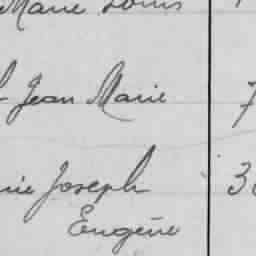 Marie Louis
Jean Marie 7
Joseph 3
Eugène